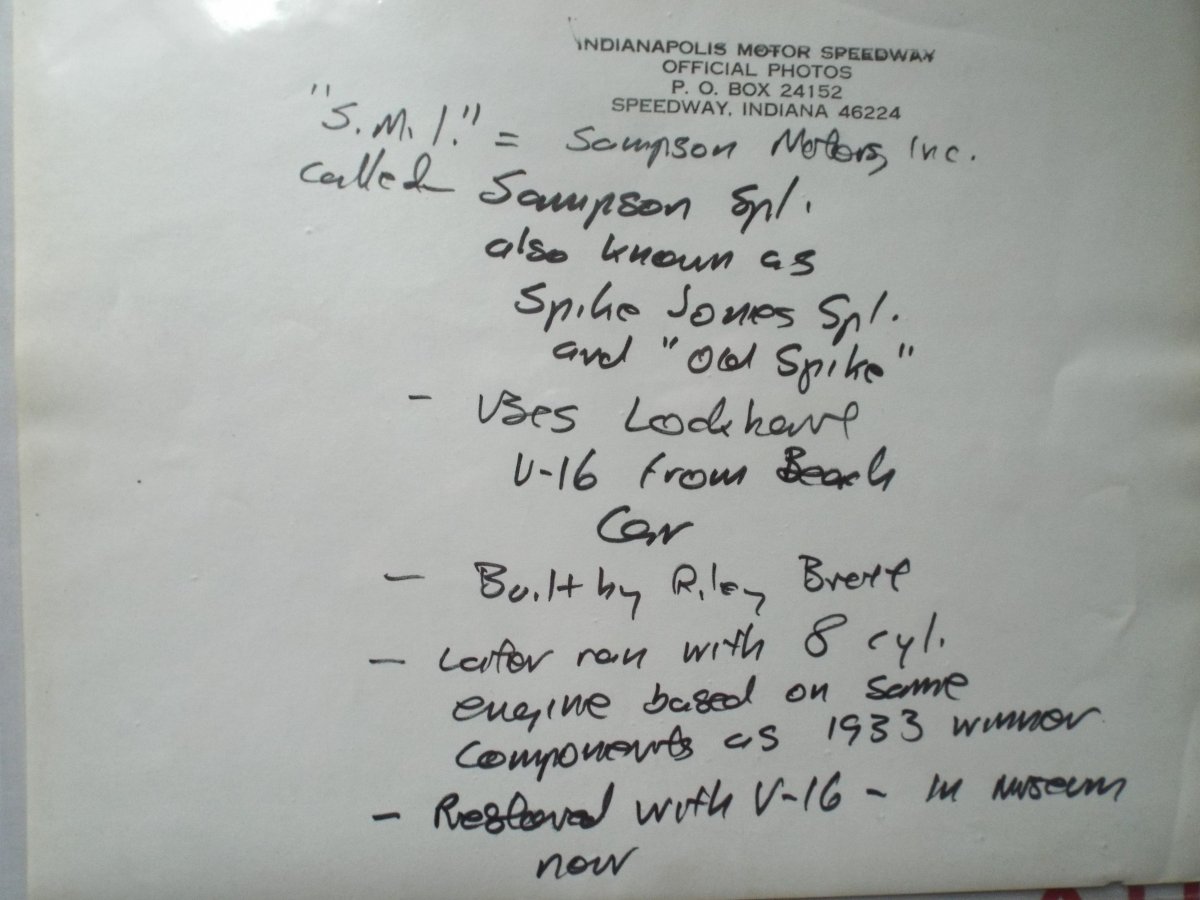 INDIANAPOLIS MOTOR SPEEDWAY
OFFICIAL PHOTOS
P. O. BOX 24152
SPEEDWAY, INDIANA 46224
"S.M.I." = Sampson Motors, Inc.
called Sampson Spl.
also known as
Spike Jones Spl.
and "Old Spike"
- Uses Lockhart
V-16 from Beach
Car
- Built by Riley Brett
- Later ran with 8 cyl.
engine based on same
components as 1933 winner
- Restored with V-16 - in museum
now